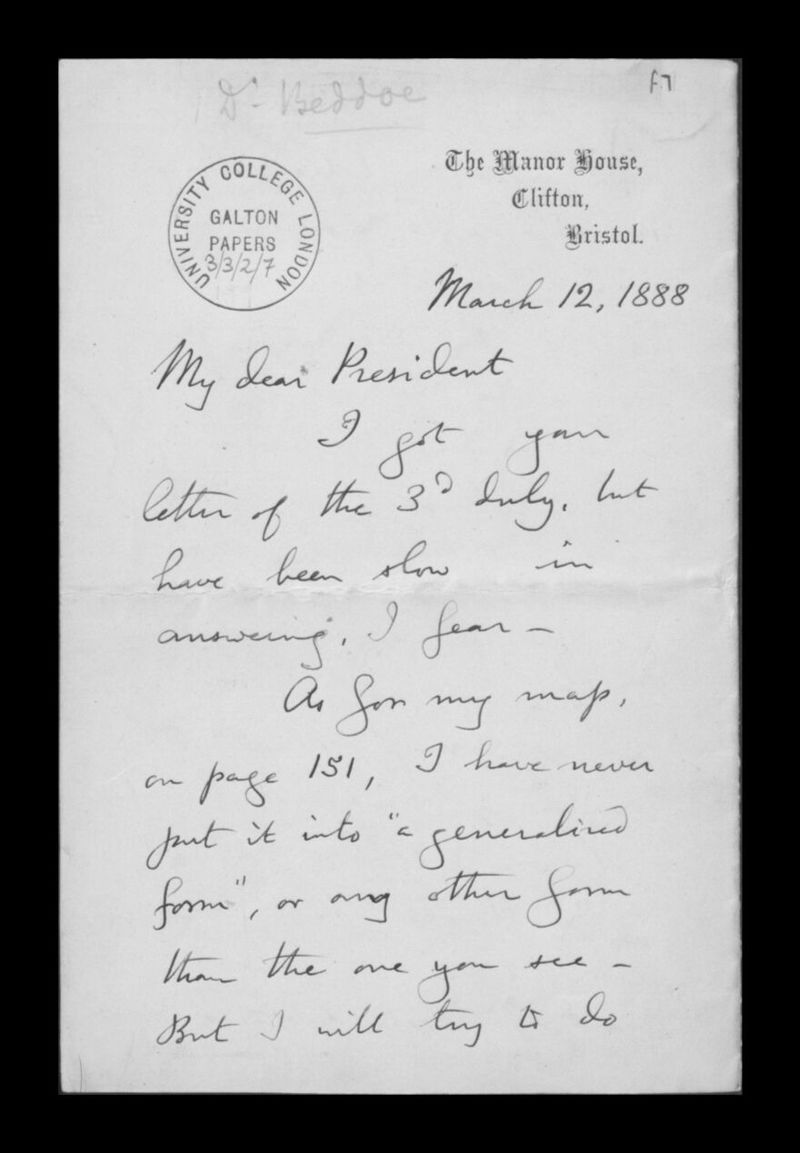 Dr Beddoe
f7
The Manor House,
Clifton,
Bristol.
UNIVERSITY COLLEGE LONDON
GALTON
PAPERS
3/3/2/7
March 12, 1888
My dear President
I got your
letter of the 3D duly, but
have been slow in
answering, I fear –
As for my map,
on page 151, I have never
put it into "a generalised
form", or any other form
than the one you see –
But I will try to do